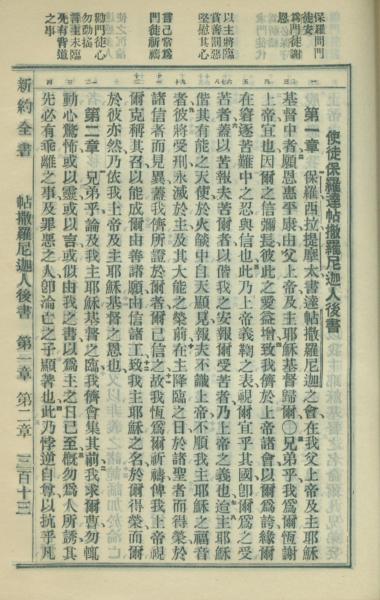 保羅問門
徒安
爲門徒謝
以主將臨
賞善罰惡
堅慰其心
言己常爲
門徒祈禱
勸門徒心
勿動搖
主未臨
先有背道
之事
使徒保羅達帖撒羅尼迦人後書
第一章 保羅西拉提摩太書達帖撒羅尼迦之會在我父上帝及主耶穌
基督中者願恩惠平康由父上帝及主耶穌基督歸爾〇兄弟乎我爲爾恆謝
上帝宜也因爾之信瀰長彼此之愛益增致我儕於上帝諸會以爾爲誇緣爾
在窘逐苦難中之忍與信也此乃上帝義鞫之表視爾宜乎其國卽爾爲之受
苦者蓋以苦報夫苦爾者以偕我之安報爾受苦者乃上帝之義也迨主耶穌
偕其有能之天使於火燄中自天顯見報夫不識上帝不順我主耶穌之福音
者彼將受刑永滅於主及其大能之榮前在主降臨之日於諸聖者而得榮於
諸信者而見異蓋我儕所證於爾者爾已信之故我恆爲爾祈禱俾我上帝視
爾克稱其召以能成爾由善諸願由信諸工致我主耶穌之名於爾得榮而爾
於彼亦然乃依我上帝及主耶穌基督之恩也
第二章 兄弟乎論及我主耶穌基督之臨我儕會集其前我求爾曹勿輒
動心驚怖或以靈或以言或似由我之書以爲主之日已至槪勿爲人所誘其
先必有乖離之事及罪惡之人卽淪亡之子顯著也此乃悖逆自尊以抗乎凡
新約全書 帖撒羅尼迦人後書 第一章 第二章 三百十三